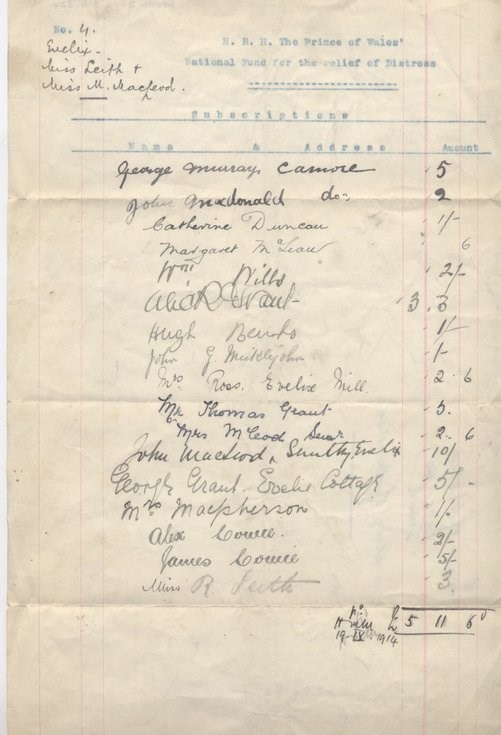 No. 4.
Evelix -
Miss Leith +
Miss M. Macleod.
H. R. H. The Prince of Wales'
National Fund for the relief of Distress
Subscriptions
Name & Address Amount
George Murray Camore 5
John Macdonald do: 2
Catherine Duncan 1/-
Margaret McLean 6
Wm Wills 2/-
Alex R Grant 3. 3
Hugh 1/-
John G. Meiklejohn 1/-
Mrs Ross. Evelix Mill. 2. 6
Mr Thomas Grant 3.
Mrs McLeod Senr 2. 6
John Macleod, Smithy Evelix 10/
George Grant Evelix Cottage 5/-
Mrs Macpherson 1/-
Alex Cowie. 2/-
James Cowie 5/-
Miss R Leith 3.
£ 5 11 6d
19 1914